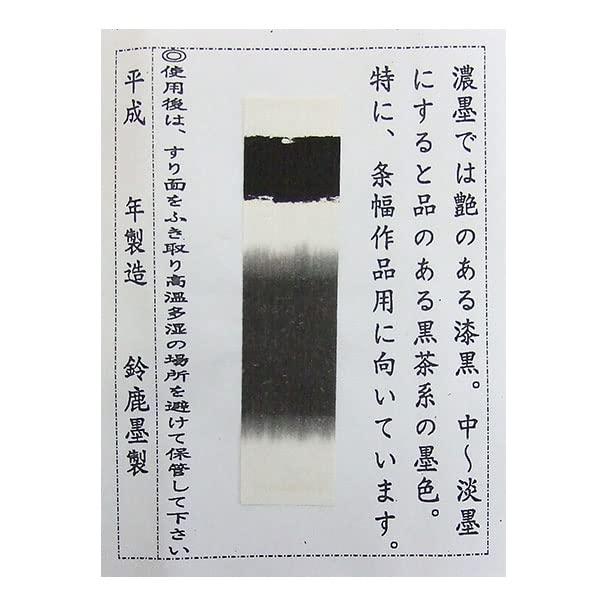 濃墨では艶のある漆黒。中～淡墨
にすると品のある黒茶系の墨色。
特に、条幅作品用に向いています。
◎使用後は、すり面をふき取り高温多湿の場所を避けて保管して下さい
平成　年製造　鈴鹿墨製